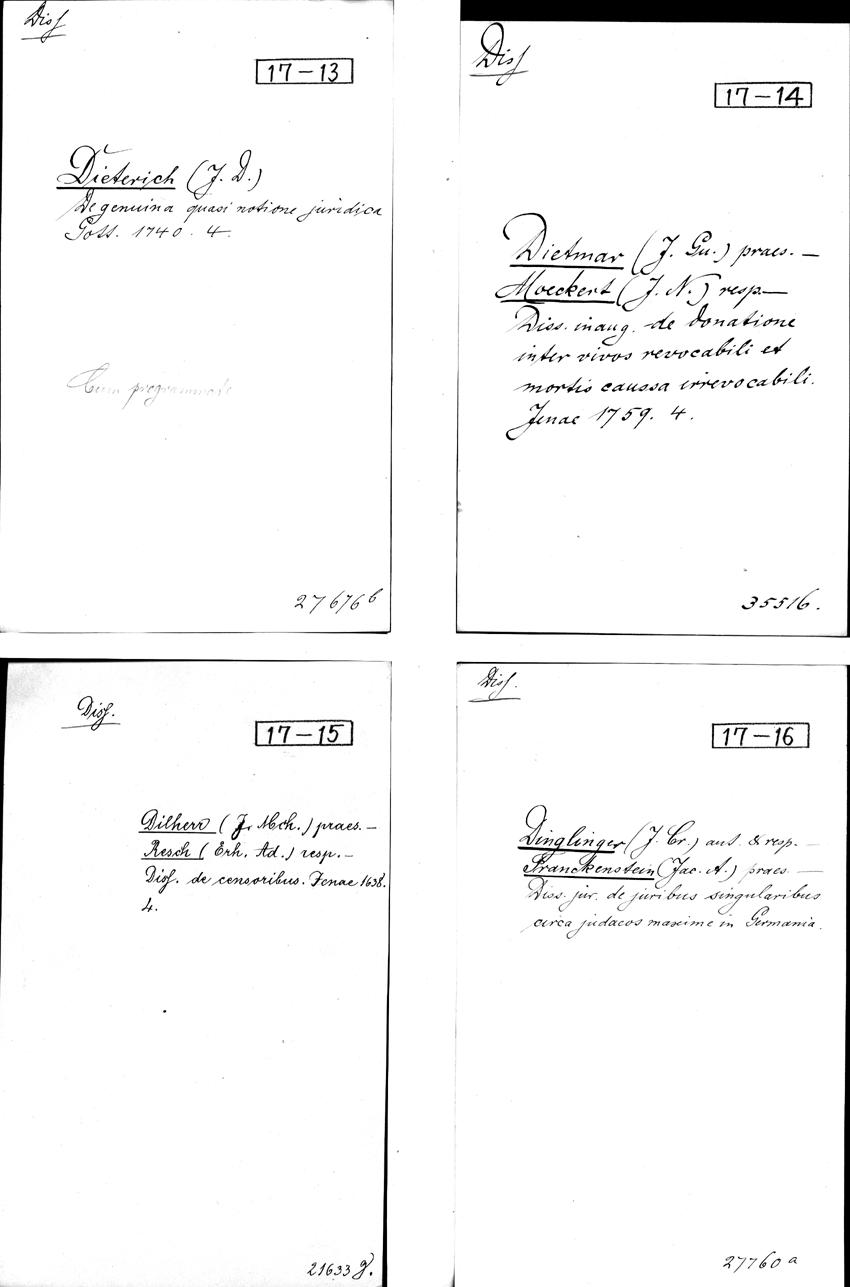 Diss
17-13
Dieterich (J. D.)
De genuina quasi notione juridica
Gott. 1740. 4.
Cum programmate
27676b
Diss
17-14
Dietmar (J. Gu.) praes. —
Moeckert (J. N.) resp. —
Diss. inaug. de donatione
inter vivos revocabili et
mortis caussa irrevocabili.
Jenae 1759. 4.
35516.
Diss.
17-15
Dilherr (J. Mch.) praes. —
Resch (Erh. Ad.) resp. —
Diss. de censoribus. Jenae 1638.
4.
21633 g.
Diss.
17-16
Dinglinger (J. Cr.) aut. & resp. —
Franckenstein (Jac. A.) praes. —
Diss. jur. de juribus singularibus
circa judaeos maxime in Germania.
27760 a